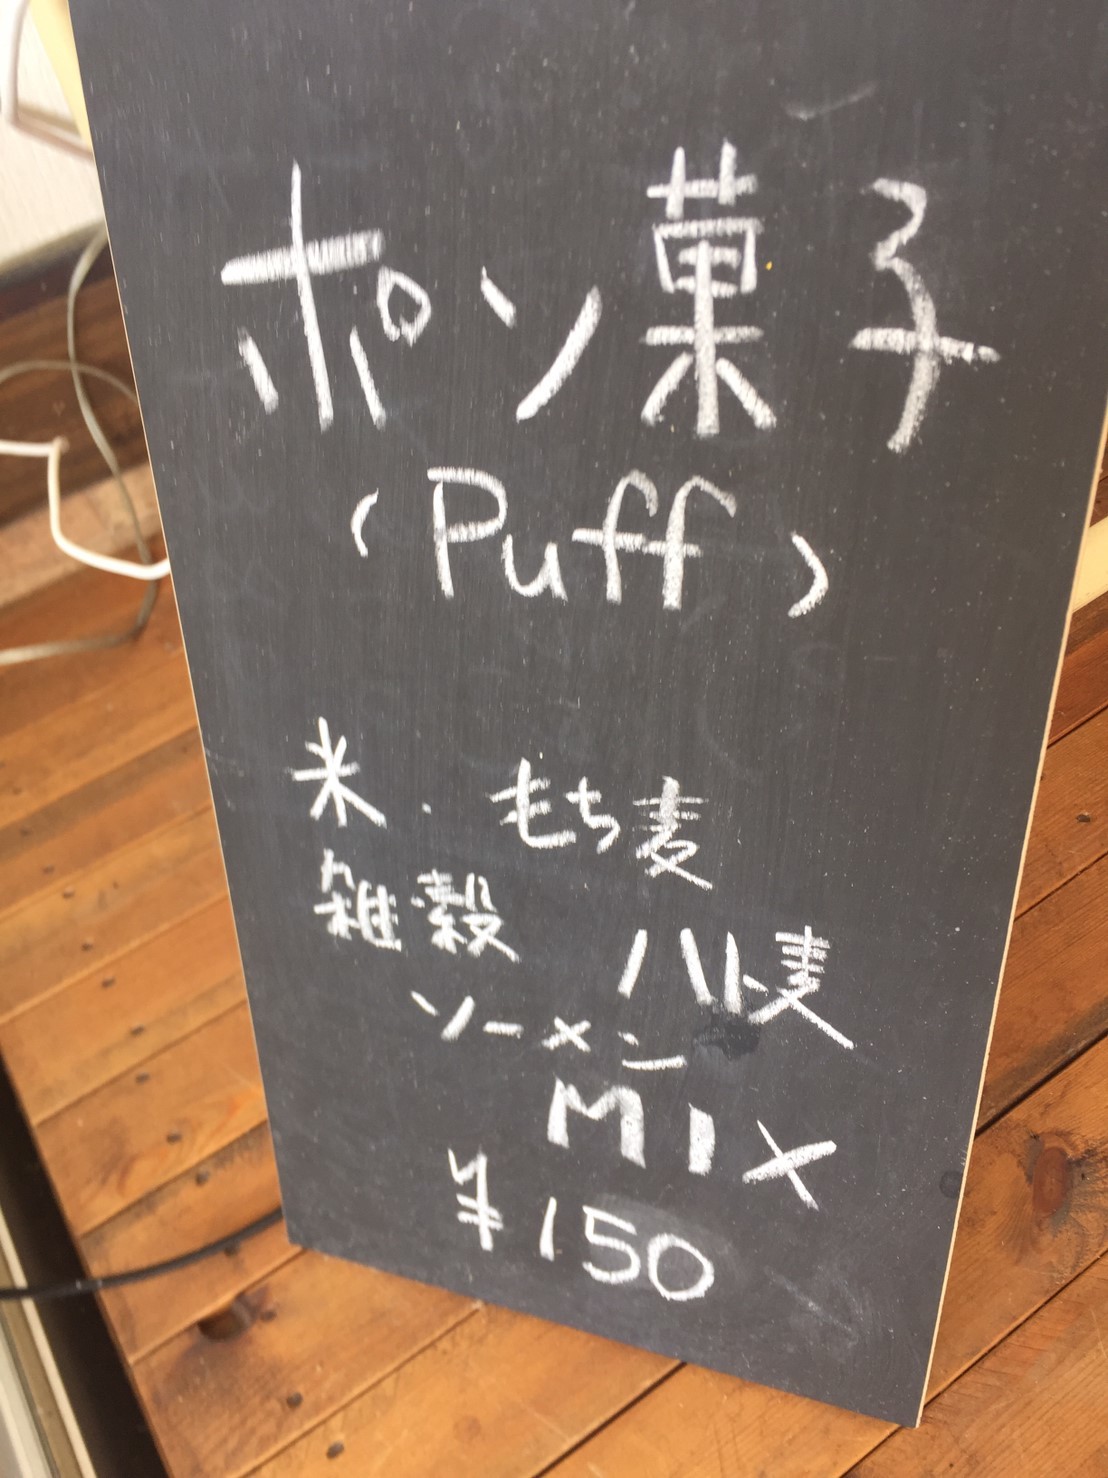 ポン菓子
(Puff)
米・もち麦
雑穀 ハト麦
ソーメン
MIX
¥150